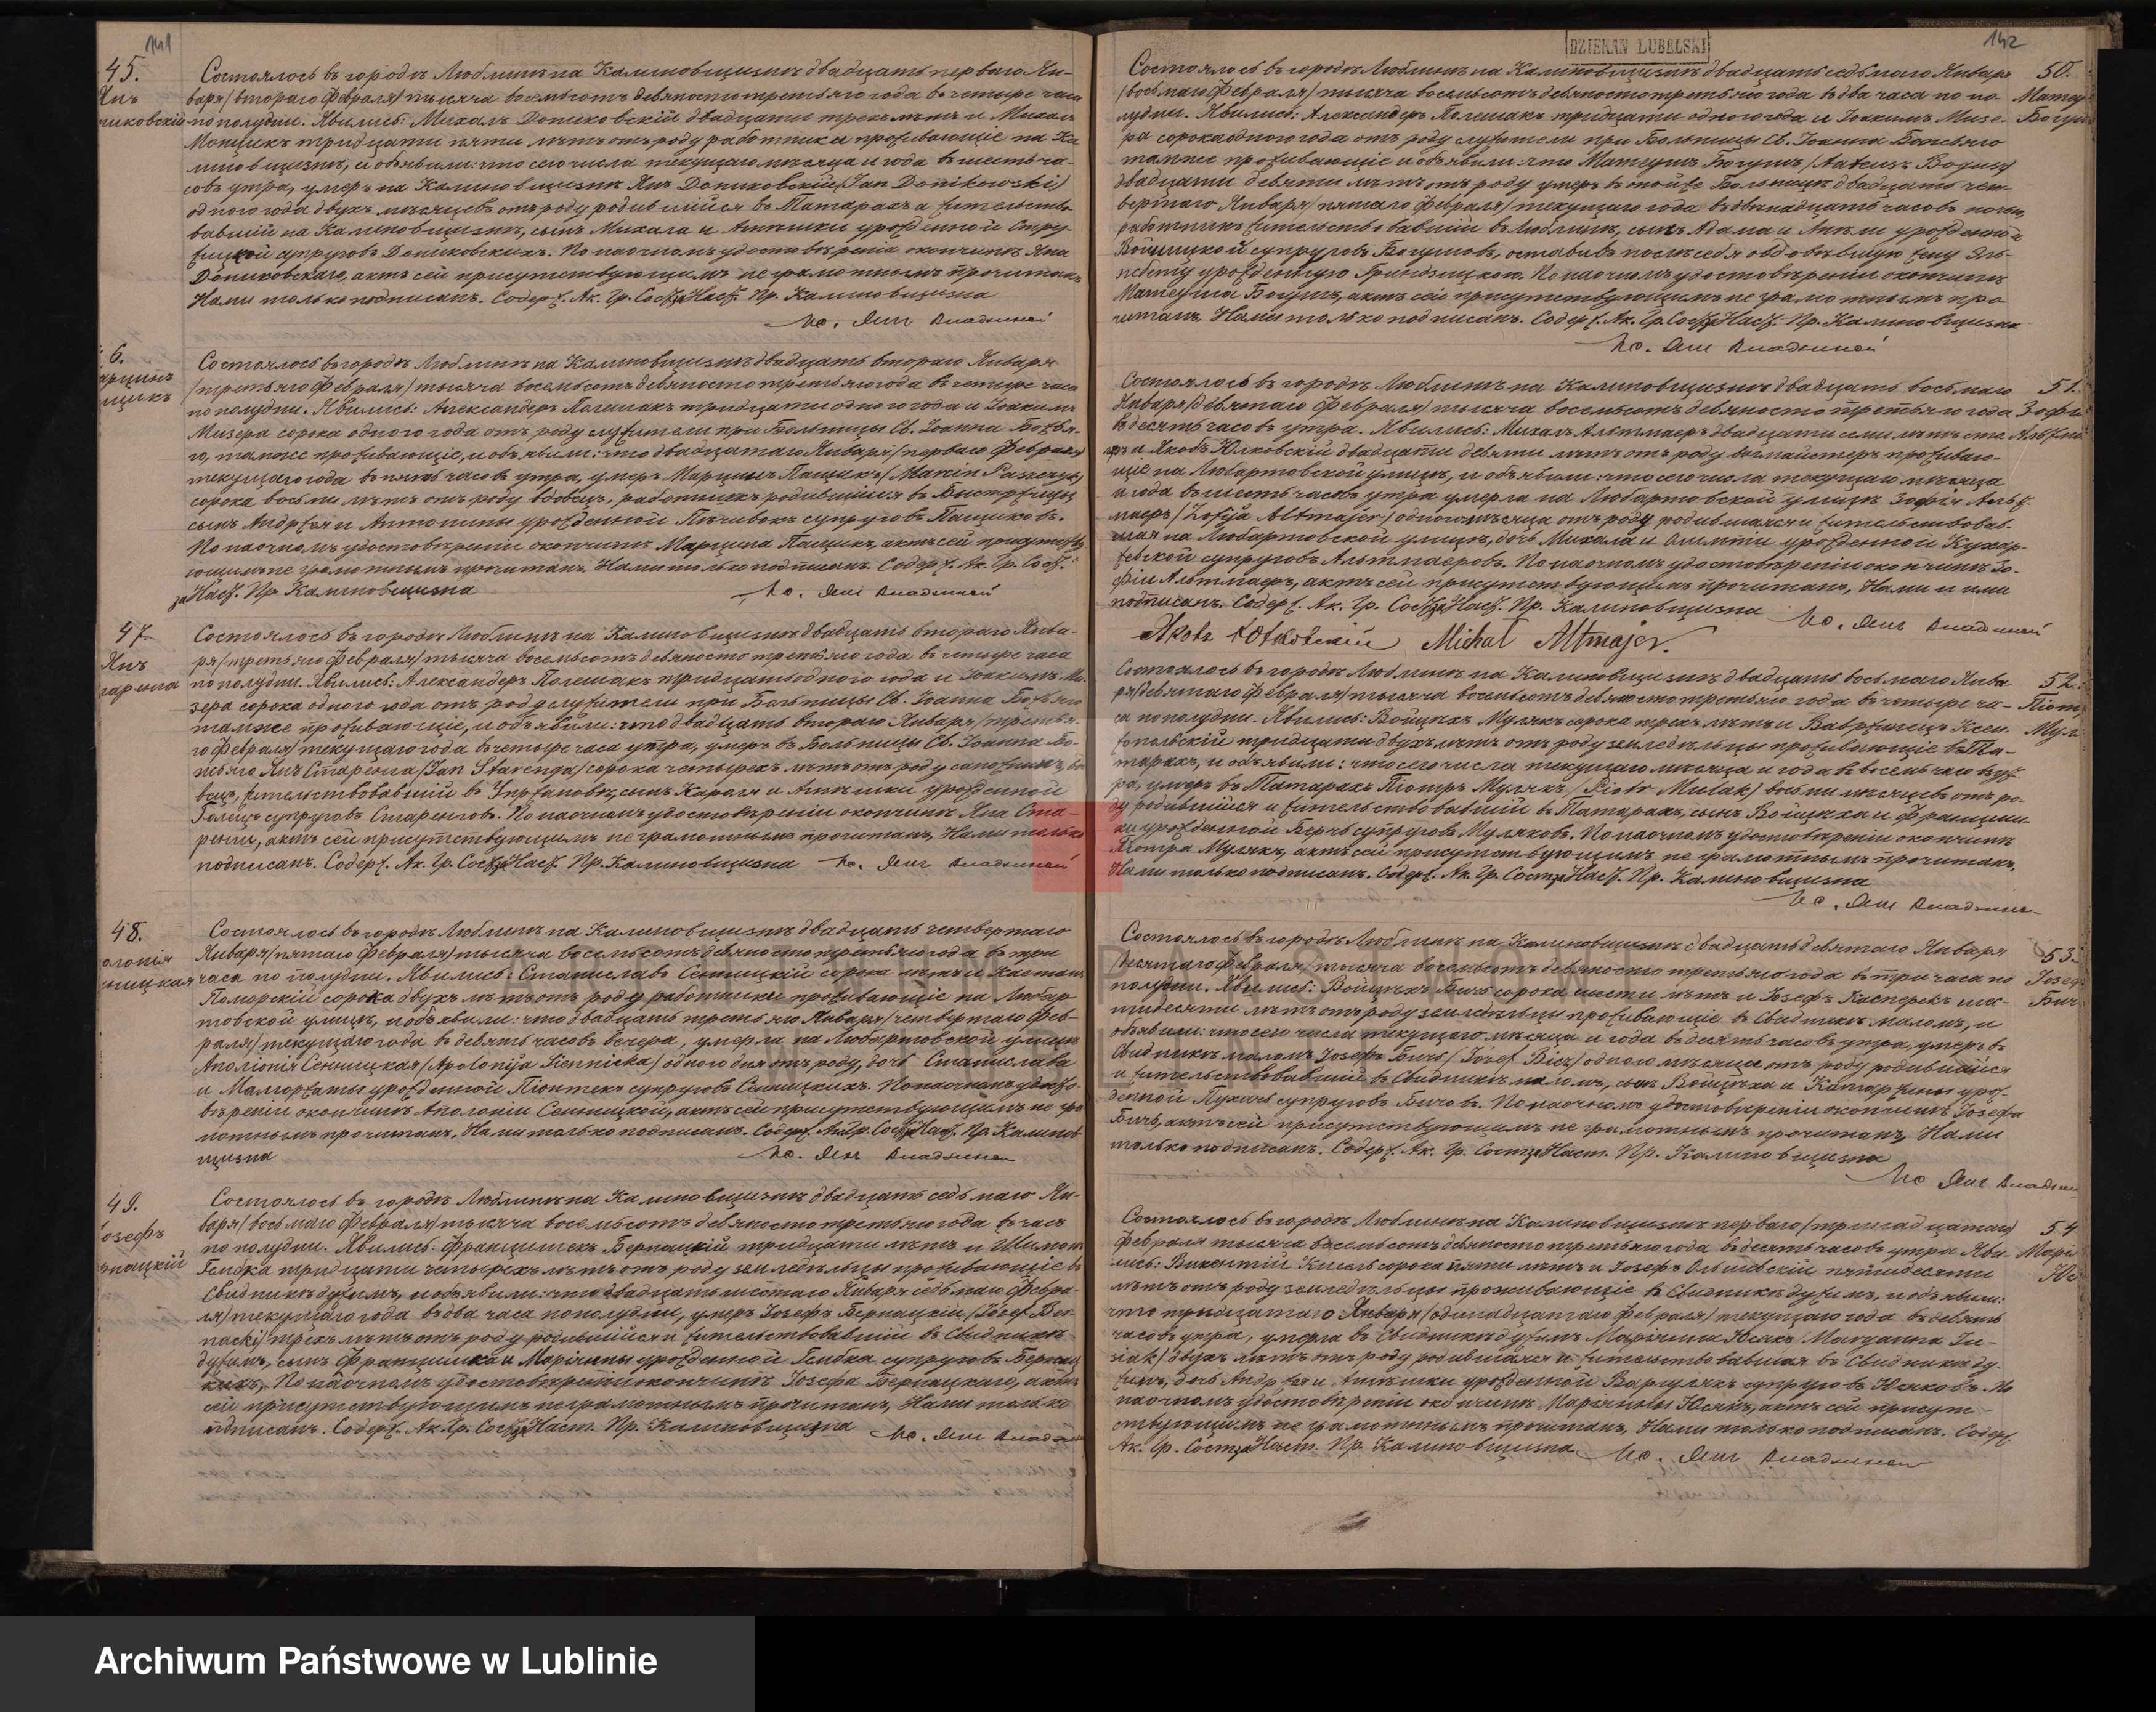 141
45.
Янъ
никовскій
Состоялось въ городѣ Люблинѣ на Калиновщизнѣ двадцать перваго Ян-
варя /втораго Февраля/ тысяча восемьсотъ девяносто третьяго года въ четыре часа
по полудни. Явились: Михалъ Дониковскій двадцати трехъ лѣтъ и Михалъ
тридцати пяти лѣтъ отъ роду работники проживающіе на Ка-
линовщизнѣ, и объявили: что сего числа текущаго мѣсяца и года въ шесть ча-
совъ утра, умеръ на Калиновщизнѣ Янъ Дониковскій /Jan Donikowski/
одного года двухъ мѣсяцевъ отъ роду родившійся въ Татарахъ а жительство-
вавшій на Калиновщизнѣ, сынъ Михала и Агнѣшки урожденной
супруговъ Дониковскихъ. По наочномъ удостовѣреніи окончинѣ Яна
Дониковскаго, актъ сей присутствующимъ неграмотнымъ прочитанъ
Нами только подписанъ. Содерж. Ак. Гр. Сост. за Наст. Пр. Калиновщизна
Кс. Янъ
6.
арцинъ
щикъ
Состоялось въ городѣ Люблинѣ на Калиновщизнѣ двадцать втораго Января
/третьяго Февраля/ тысяча восемьсотъ девяносто третьяго года въ четыре часа
по полудни. Явились: Александеръ Полешакъ тридцати одного года и Іоакимъ
Мизера сорока одного года отъ роду служители при Больницы Св. Іоанна Божья-
го, тамже проживающіе, и объявили: что двадцатаго Января /перваго Февраля/
текущаго года въ пять часовъ утра, умеръ Марцинъ Пащикъ /Marcin Paszczyk/
сорока восьми лѣтъ отъ роду вдовецъ, работникъ родившійся въ Быстржицы
сынъ Андржея и Антонины урожденной супруговъ Пащиковъ.
По наочномъ удостовѣреніи окончинѣ Марцина Пащикъ, актъ сей присутству-
ющимъ неграмотнымъ прочитанъ. Нами только подписанъ. Содерж. Ак. Гр. Сост.
за Наст. Пр. Калиновщизна Кс. Янъ
47.
Янъ
таренга
Состоялось въ городѣ Люблинѣ на Калиновщизнѣ двадцать втораго Янва-
ря /третьяго Февраля/ тысяча восемьсотъ девяносто третьяго года въ четыре часа
по полудни. Явились: Александеръ Полешакъ тридцати одного года и Іоакимъ Ми-
зера сорока одного года отъ роду служители при Больницы Св. Іоанна Божьяго
тамже проживающіе, и объявили: что двадцать втораго Января /третья-
го Февраля/ текущаго года въ четыре часа утра, умеръ въ Больницы Св. Іоанна Бо-
жьяго Янъ Старенга /Jan Starenga/ сорока четырехъ лѣтъ отъ роду сапожникъ, вдо-
вецъ, жительствовавшій въ сынъ Кароля и Агнѣшки урожденной
Голецъ супруговъ Старенговъ. По наочномъ удостовѣреніи окончинѣ Яна Ста-
ренги, актъ сей присутствующимъ неграмотнымъ прочитанъ, Нами только
подписанъ. Содерж. Ак. Гр. Сост. за Наст. Пр. Калиновщизна Кс. Янъ
48.
олонія
нницкая
Состоялось въ городѣ Люблинѣ на Калиновщизнѣ двадцать четвертаго
Января /пятаго Февраля/ тысяча восемьсотъ девяносто третьяго года въ три
часа по полудни. Явились: Станиславъ Сенницкій сорока лѣтъ и Каетанъ
Поморскій сорока двухъ лѣтъ отъ роду работники проживающіе на Любар-
товской улицѣ, и объявили: что двадцать третьяго Января /четвертаго Фев-
раля/ текущаго года въ девять часовъ вечера, умерла на Любартовской улицѣ
Аполіонія Сенницкая /Apolonija Siennicka/ одного дня отъ роду, дочь Станислава
и Малгоржаты урожденной Піонтекъ супруговъ Сенницкихъ. По наочномъ удосто-
вѣреніи окончинѣ Аполоніи Сенницкой, актъ сей присутствующимъ негра-
мотнымъ прочитанъ, Нами только подписанъ. Содерж. Ак. Гр. Сост. за Наст. Пр. Калинов-
щизна Кс. Янъ
49.
Іозефъ
рнацкій
Состоялось въ городѣ Люблинѣ на Калиновщизнѣ двадцать седьмаго Ян-
варя /восьмаго Февраля/ тысяча восемьсотъ девяносто третьяго года въ часъ
по полудни. Явились: Францишекъ Бернацкій тридцати лѣтъ и Шимонъ
Гембка тридцати четырехъ лѣтъ отъ роду земледѣльцы проживающіе въ
Свидникѣ дужимъ, и объявили: что двадцать шестаго Января /седьмаго Февра-
ля/ текущаго года въ два часа по полудни, умеръ Іозефъ Бернацкій /Józef Ber-
nacki/ трехъ лѣтъ отъ роду родившійся и жительствовавшій въ Свидникѣ
дужимъ, сынъ Францишка и Марянны урожденной Гембка супруговъ Бернац-
кихъ, По наочномъ удостовѣреніи окончинѣ Іозефа Бернацкаго, актъ
сей присутствующимъ неграмотнымъ прочитанъ, Нами только
подписанъ. Содерж. Ак. Гр. Сост. за Наст. Пр. Калиновщизна Кс. Янъ
DZIEKAN LUBELSKI
142
50.
Матеу
Богу
Состоялось въ городѣ Люблинѣ на Калиновщизнѣ двадцать седьмаго Января
/восьмаго Февраля/ тысяча восемьсотъ девяносто третьяго года въ два часа по по-
лудни. Явились: Александеръ Полешакъ тридцати одного года и Іоакимъ Мизе-
ра сорока одного года отъ роду служители при Больницы Св. Іоанна Божьяго
тамже проживающіе и объявили: что Матеушъ Богушъ
двадцати девяти лѣтъ отъ роду умеръ въ тойже Больницѣ двадцать чет-
вертаго Января /пятаго Февраля/ текущаго года въ двѣнадцать часовъ ночью,
работникъ жительствовавшій въ Люблинѣ, сынъ Адама и Анели урожденной
Войцицкой супруговъ Богушовъ, оставивъ послѣ себя овдовѣвшую жену Эль-
жбету урожденную По наочномъ удостовѣреніи окончинѣ
Матеуша Богушъ, актъ сей присутствующимъ неграмотнымъ про-
читанъ, Нами только подписанъ. Содерж. Ак. Гр. Сост. за Наст. Пр. Калиновщизна
Кс. Янъ
51.
Зофія
Альтма
Состоялось въ городѣ Люблинѣ на Калиновщизнѣ двадцать восьмаго
Января /девятаго Февраля/ тысяча восемьсотъ девяносто третьяго года
въ десять часовъ утра. Явились: Михалъ Альтмаеръ двадцати семи лѣтъ
и Яковъ Юлковскій двадцати девяти лѣтъ отъ роду проживаю-
щіе на Любартовской улицѣ, и объявили: что сего числа текущаго мѣсяца
и года въ шесть часовъ утра умерла на Любартовской улицѣ Зофія Альт-
маеръ /Zofija Altmajer/ одного мѣсяца отъ роду родившаяся и жительствовав-
шая на Любартовской улицѣ, дочь Михала и Олимпіи урожденной Кухар-
жевской супруговъ Альтмаеровъ. По наочномъ удостовѣреніи окончинѣ Зо-
фіи Альтмаеръ, актъ сей присутствующимъ прочитанъ, Нами и ими
подписанъ. Содерж. Ак. Гр. Сост. за Наст. Пр. Калиновщизна Кс. Янъ
Яковъ Юлковскій Michał Altmajer.
52.
Піот
Мул
Состоялось въ городѣ Люблинѣ на Калиновщизнѣ двадцать восьмаго Янва-
ря /девятаго Февраля/ тысяча восемьсотъ девяносто третьяго года въ четыре ча-
са по полудни. Явились: Войцѣхъ Мулякъ сорока трехъ лѣтъ и Вавржинецъ Ксен-
жопольскій тридцати двухъ лѣтъ отъ роду земледѣльцы проживающіе въ Та-
тарахъ, и объявили: что сего числа текущаго мѣсяца и года въ восемь часовъ ут-
ра, умеръ въ Татарахъ Піотръ Мулякъ /Piotr Mulak/ восьми мѣсяцевъ отъ ро-
ду родившійся и жительствовавшій въ Татарахъ, сынъ Войцѣха и Францишки
урожденной супруговъ Муляковъ. По наочномъ удостовѣреніи окончинѣ
Піотра Мулякъ, актъ сей присутствующимъ неграмотнымъ прочитанъ,
Нами только подписанъ. Содерж. Ак. Гр. Сост. за Наст. Пр. Калиновщизна
Кс. Янъ
53.
Іозеф
Бич
Состоялось въ городѣ Люблинѣ на Калиновщизнѣ двадцать девятаго Января
/десятаго Февраля/ тысяча восемьсотъ девяносто третьяго года въ три часа по
полудни. Явились: Войцѣхъ Бичъ сорока шести лѣтъ и Іозефъ Касперекъ
лѣтъ отъ роду земледѣльцы проживающіе въ Свидникѣ маломъ, и
объявили: что сего числа текущаго мѣсяца и года въ девять часовъ утра, умеръ въ
Свидникѣ маломъ Іозефъ Бичъ /Józef Bicz/ одного мѣсяца отъ роду родившійся
и жительствовавшій въ Свидникѣ маломъ, сынъ Войцѣха и Катаржины урож-
денной Пухачъ супруговъ Бичовъ. По наочномъ удостовѣреніи окончинѣ Іозефа
Бичъ, актъ сей присутствующимъ неграмотнымъ прочитанъ, Нами
только подписанъ. Содерж. Ак. Гр. Сост. за Наст. Пр. Калиновщизна
Кс. Янъ
54
Марі
Юс
Состоялось въ городѣ Люблинѣ на Калиновщизнѣ перваго /тринадцатаго/
Февраля тысяча восемьсотъ девяносто третьяго года въ десять часовъ утра Яви-
лись: Викентій Кисель сорока пяти лѣтъ и Іозефъ Ольшевскій пятидесяти
лѣтъ отъ роду земледѣльцы проживающіе въ Свидникѣ дужимъ, и объявили:
что тридцатаго Января /одинадцатаго Февраля/ текущаго года въ девять
часовъ утра, умерла въ Свидникѣ дужимъ Марянна Юсякъ /Maryanna Ju-
siak/ двухъ лѣтъ отъ роду родившаяся и жительствовавшая въ Свидникѣ ду-
жимъ, дочь Андржея и Агнѣшки урожденной Варгулякъ супруговъ Юсяковъ. По
наочномъ удостовѣреніи окончинѣ Марянны Юсякъ, актъ сей присут-
ствующимъ неграмотнымъ прочитанъ, Нами только подписанъ. Содерж.
Ак. Гр. Сост. за Наст. Пр. Калиновщизна Кс. Янъ
ARCHIWUM PAŃSTWOWE
W LUBLINIE
Archiwum Państwowe w Lublinie